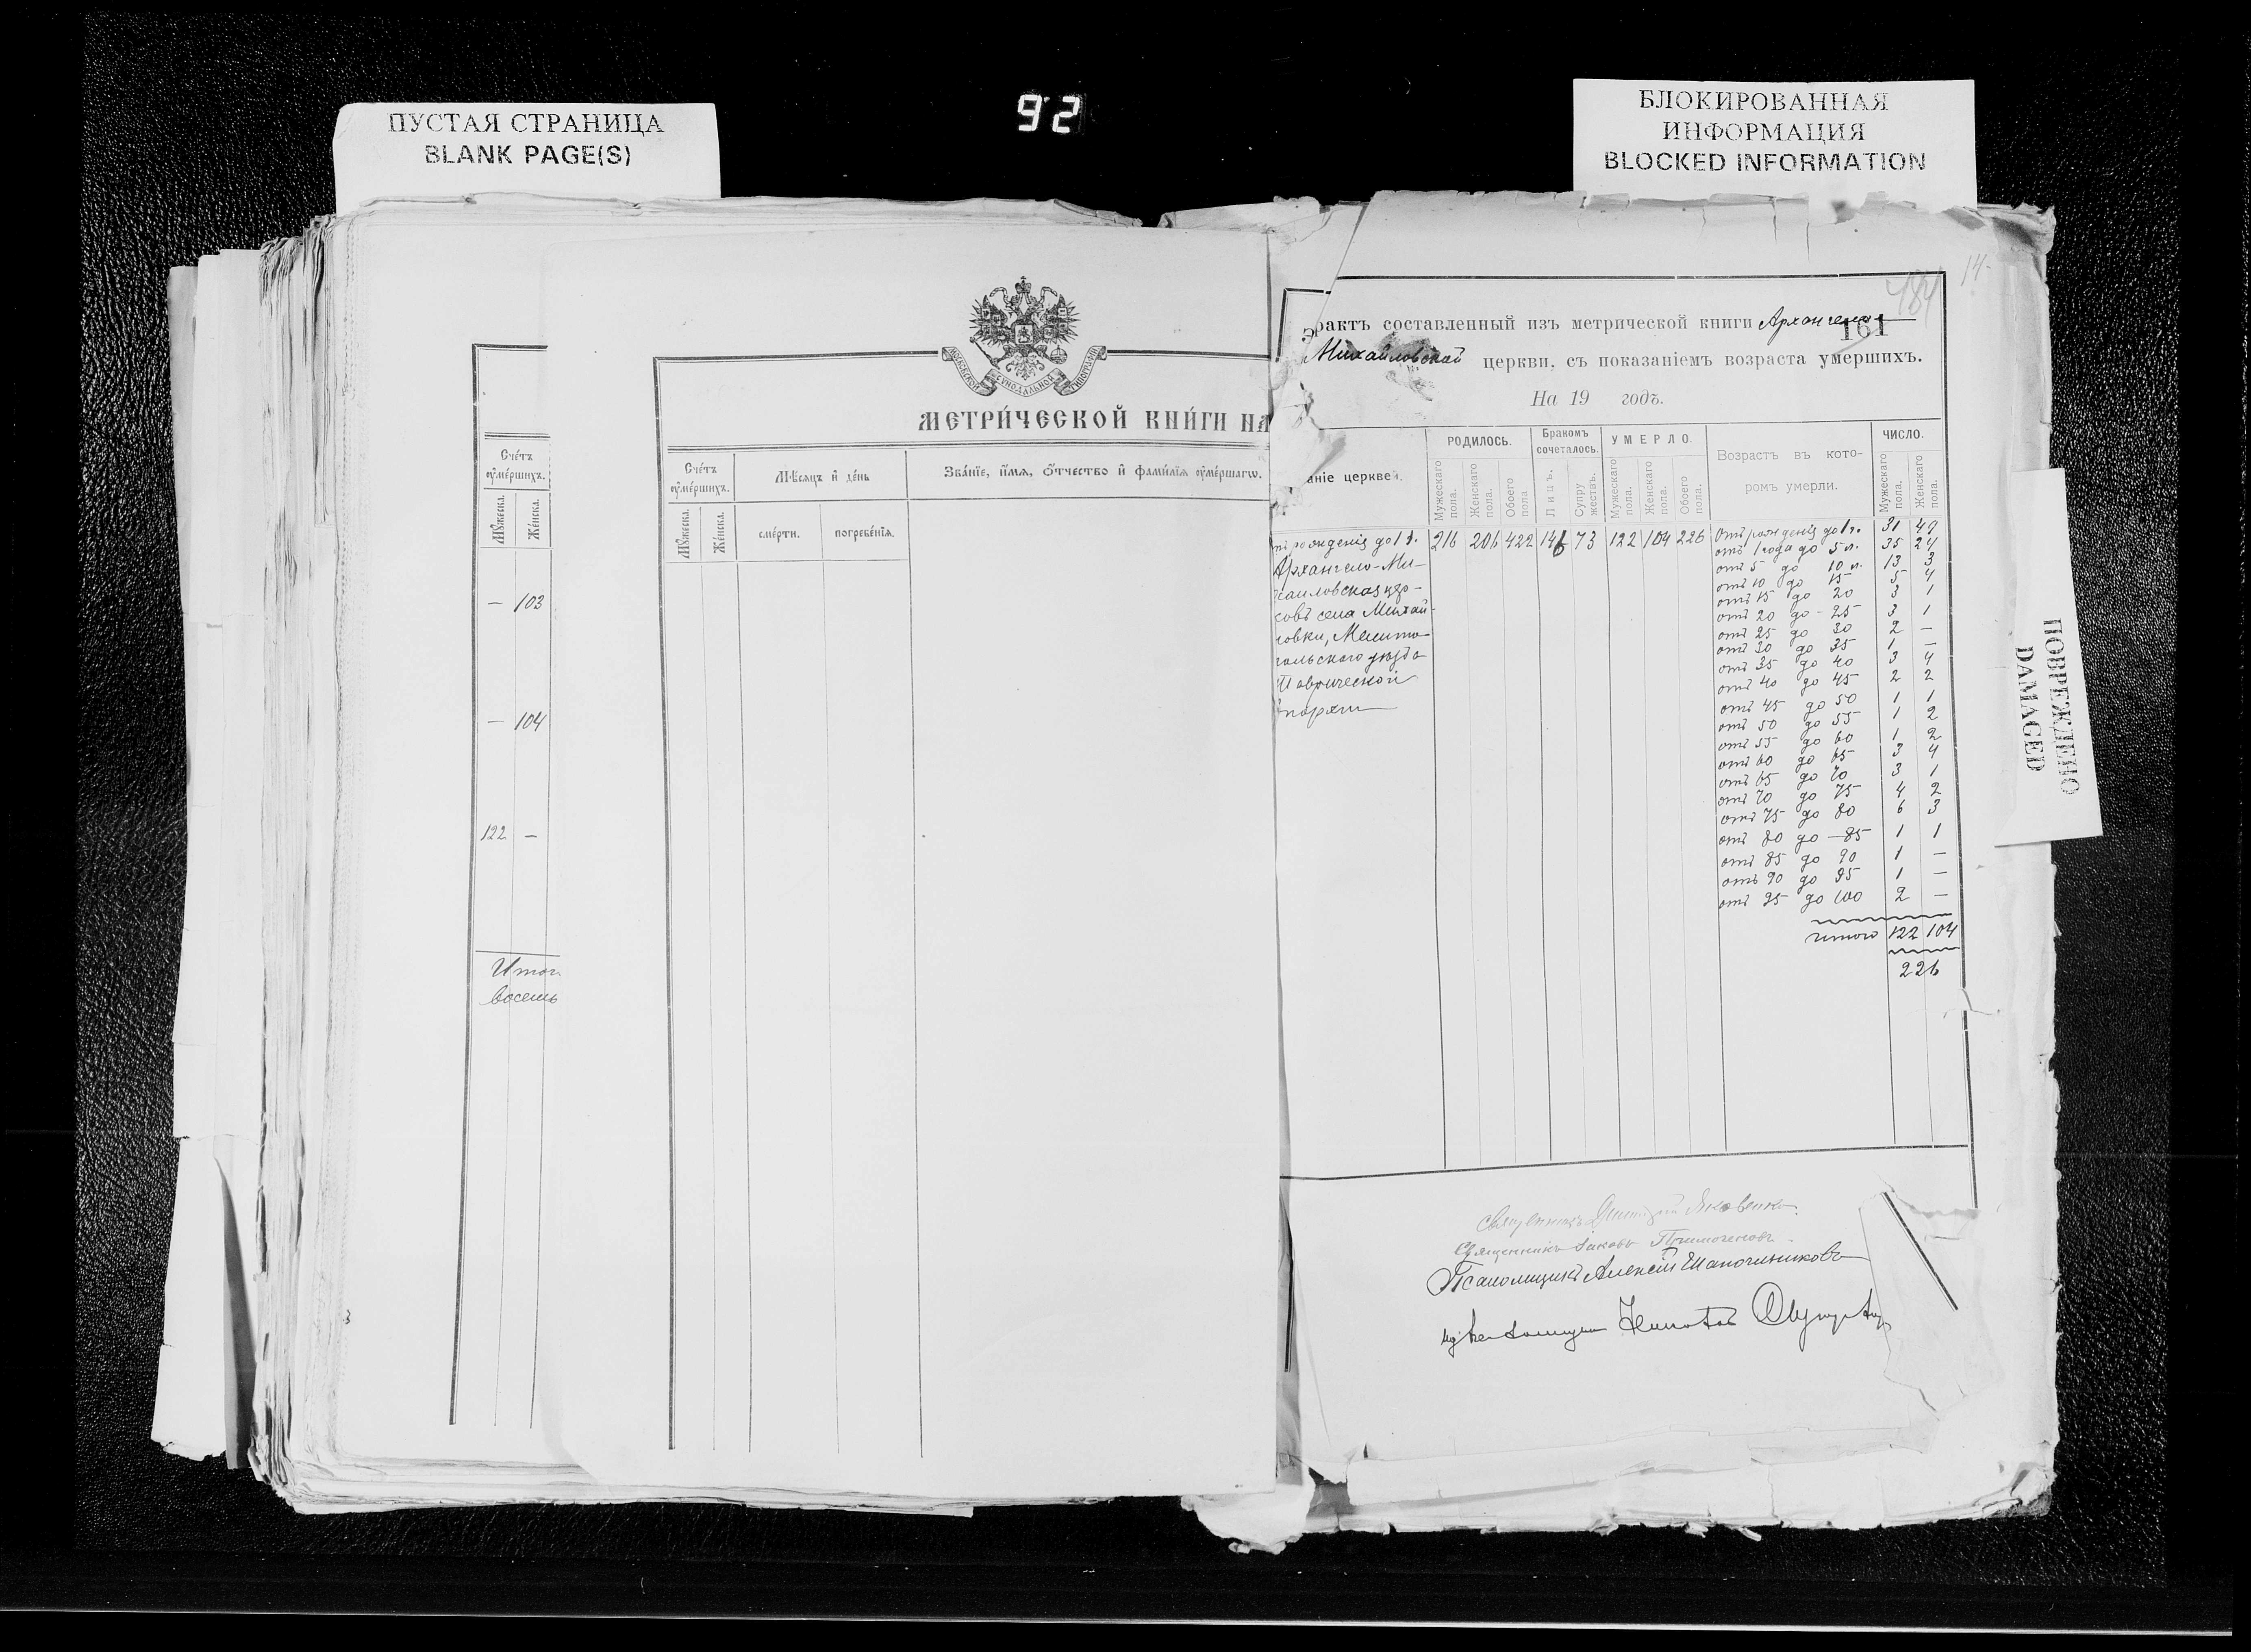 92
ПУСТАЯ СТРАНИЦА
BLANK PAGE(S)
БЛОКИРОВАННАЯ
ИНФОРМАЦИЯ
BLOCKED INFORMATION
ПОВРЕЖДЕНО
DAMAGED
Счётъ
оумершихъ.
Мужеска.
Женска.
— 103
— 104
122 —
Итог
восемь
МОСКОВСКОЙ СѴНОДАЛЬНОЙ ТИПОГРАФІИ
МЕТРИ́ЧЕСКОЙ КНИ́ГИ НА
Счётъ
оумершихъ.
Мѣсяцъ и де́нь
Зва́нїе, и́мѧ, ѻ҆́тчество и фами́лїѧ оу҆ме́ршагѡ.
Мужеска.
Женска.
сме́рти.
погребе́нїѧ.
484
14
рактъ составленный изъ метрической книги Архангело-
161
Михайловской церкви, съ показаніемъ возраста умершихъ.
На 19 годъ.
аніе церквей.
РОДИЛОСЬ.
Бракомъ сочеталось.
УМЕРЛО.
Возрастъ въ кото-
ромъ умерли.
ЧИСЛО.
Мужескаго пола.
Женскаго пола.
Обоего пола
Лицъ.
Супружествъ.
Мужескаго пола.
Женскаго пола.
Обоего пола.
Мужескаго пола.
Женскаго пола.
рожденія до 1 г. 216 206 422 146 73 122 104 226 Отъ рожденія до 1 г. 31 49
Архангело-Ми- отъ 1 года до 5 л. 35 24
хаиловская цер- отъ 5 до 10 л. 13 3
ковь села Михай- отъ 10 до 15 5 4
ловки, Мелито- отъ 15 до 20 3 1
польского уѣзда отъ 20 до 25 3 1
Таврической отъ 25 до 30 2 —
отъ 30 до 35 1 —
отъ 35 до 40 3 4
отъ 40 до 45 2 2
отъ 45 до 50 1 1
отъ 50 до 55 1 2
отъ 55 до 60 1 2
отъ 60 до 65 3 4
отъ 65 до 70 3 1
отъ 70 до 75 4 2
отъ 75 до 80 6 3
отъ 80 до 85 1 1
отъ 85 до 90 1 —
отъ 90 до 95 1 —
отъ 95 до 100 2 —
итого 122 104
226
Священникъ Димитрій Яковенко.
Священникъ Іаковъ
Псаломщикъ Алексій Шапочниковъ